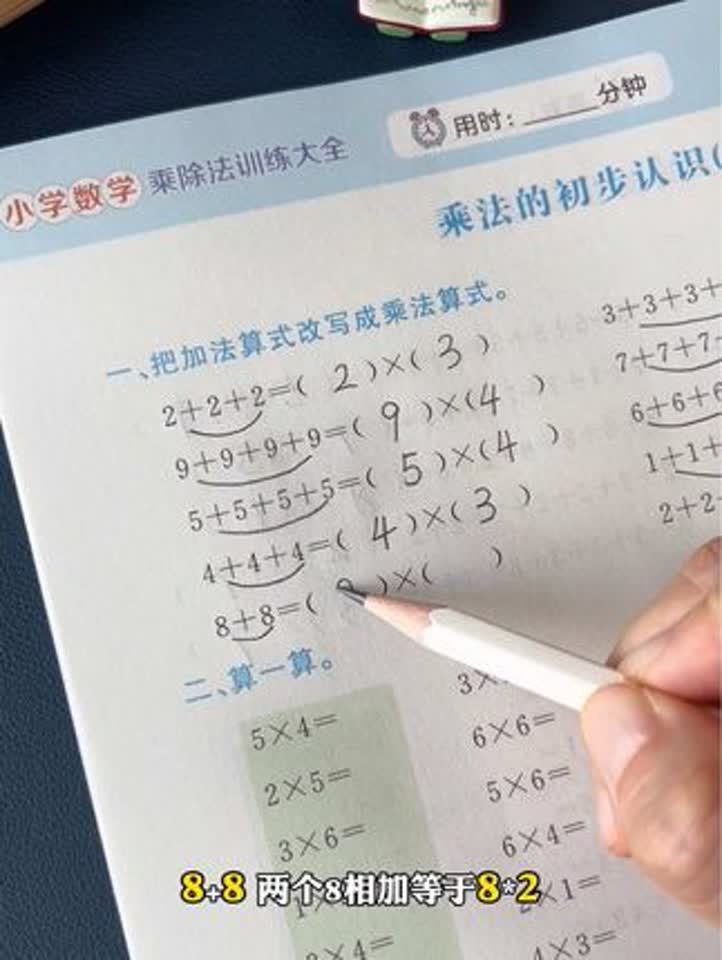 用时：______分钟
小学数学 乘除法训练大全
乘法的初步认识(
一、把加法算式改写成乘法算式。
2+2+2=( 2 )×( 3 )
9+9+9+9=( 9 )×( 4 )
5+5+5+5=( 5 )×( 4 )
4+4+4=( 4 )×( 3 )
8+8=( 8 )×( )
3+3+3+
7+7+7+
6+6+6
1+1+
2+2
二、算一算。
5×4=
2×5=
3×6=
3×4=
3×
6×6=
5×6=
6×4=
2×1=
4×3=
8+8 两个8相加等于8*2